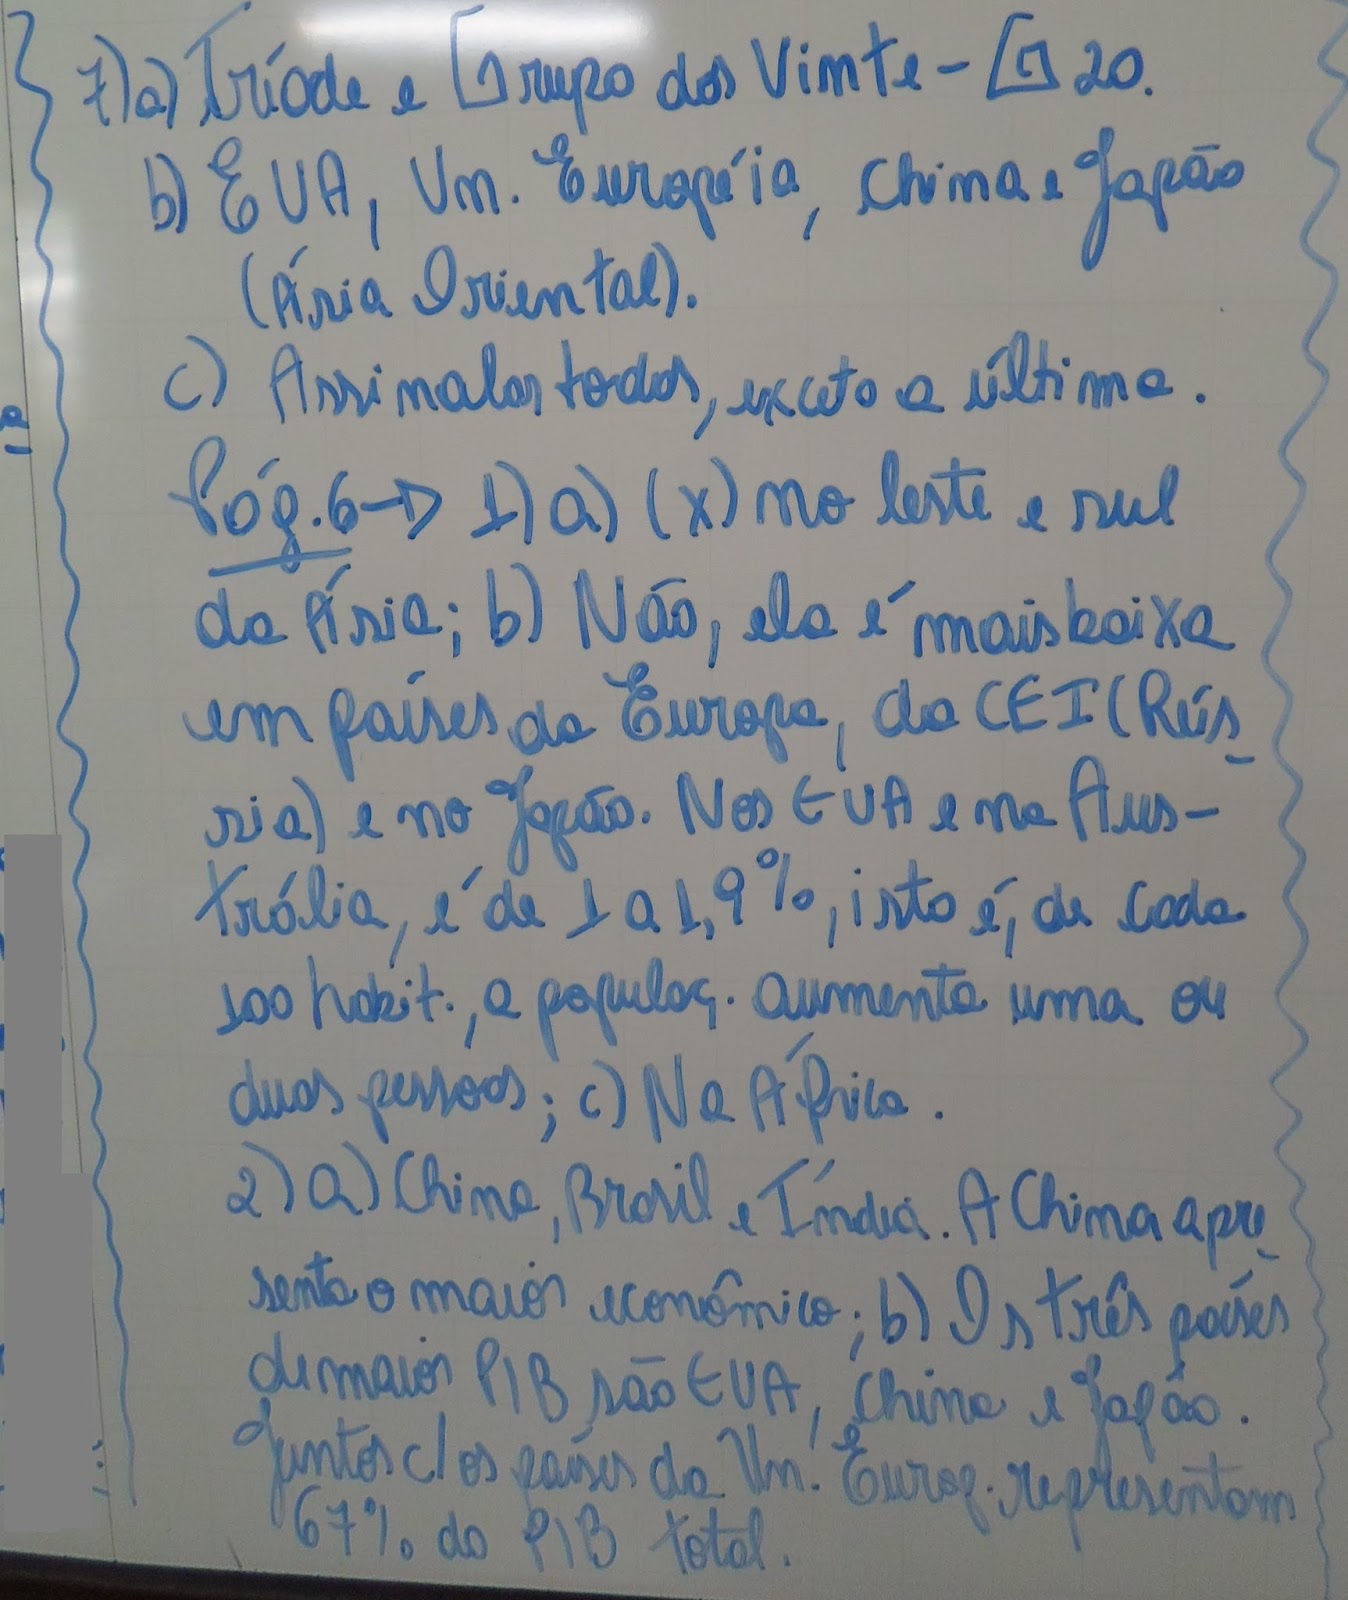 7)a) Tríade e Grupo dos Vinte - G20.
b) EUA, Un. Européia, China e Japão
(Ásia Oriental).
c) Assinalar todos, exceto a última.
Pág. 6 → 1)a) (x) no leste e sul
da Ásia; b) Não, ela é mais baixa
em países da Europa, da CEI (Rús-
sia) e no Japão. Nos EUA e na Aus-
trália, é de 1 a 1,9%, isto é, de cada
100 habit., a populaç. aumenta uma ou
duas pessoas; c) Na África.
2) a) China, Brasil e Índia. A China apre-
senta o maior econômico; b) Os três países
de maior PIB são EUA, China e Japão.
Juntos c/ os países da Un. Europ. representam
67% do PIB total.